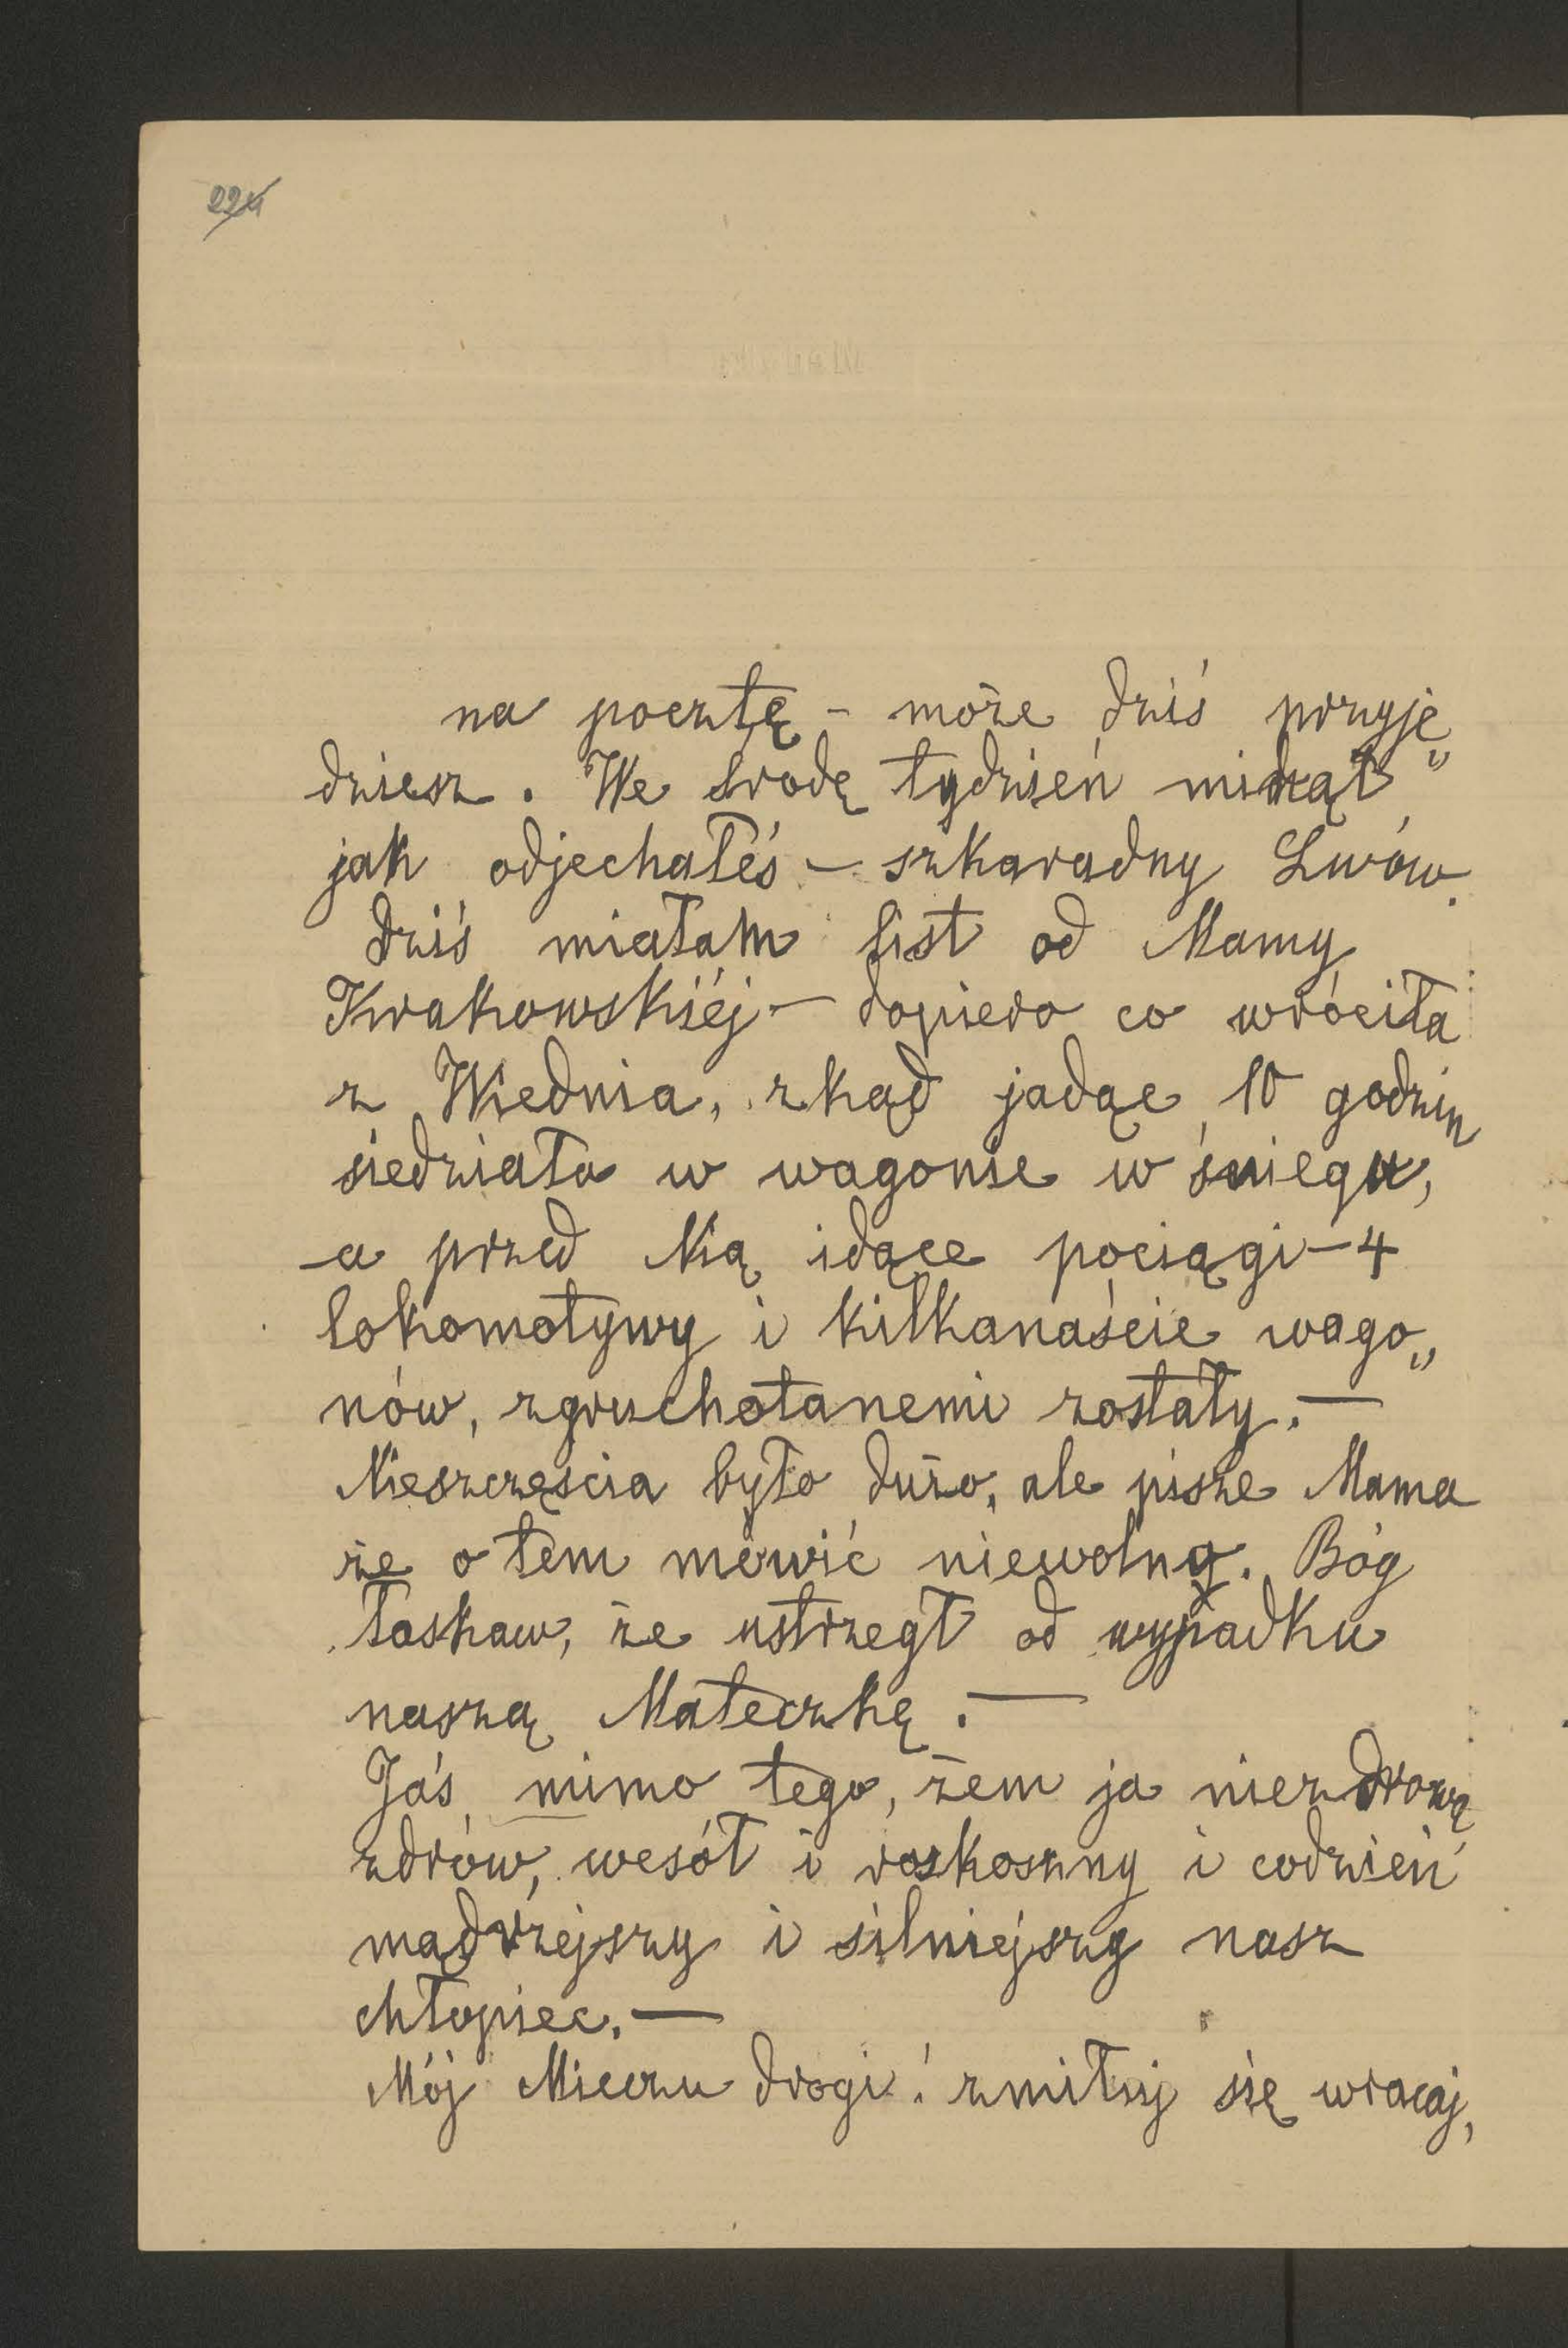 224
na pocztę - może dziś przyje„
dziesz. We środę tydzień minął
jak odjechałeś - szkaradny Lwów.
Dziś miałam list od Mamy
Krakowskiéj - dopiero co wróciła
z Wiednia, zkąd jadąc 10 godzin
siedziała w wagonie w śniegu,
a przed Nią idące pociągi - 4
lokomotywy i kilkanaście wago„
nów, zgruchotanemi zostały. —
Nieszczęścia było dużo, ale pisze Mama
że o tem mówić niewolno. Bóg
łaskaw, że ustrzegł od wypadku
naszą Mateczkę. —
Jaś mimo tego, żem ja niezdrową
zdrów, wesół i roskoszny i codzień
mądrzejszy i silniejszy nasz
chłopiec. —
Mój Mieczu drogi! zmiłuj się wracaj,